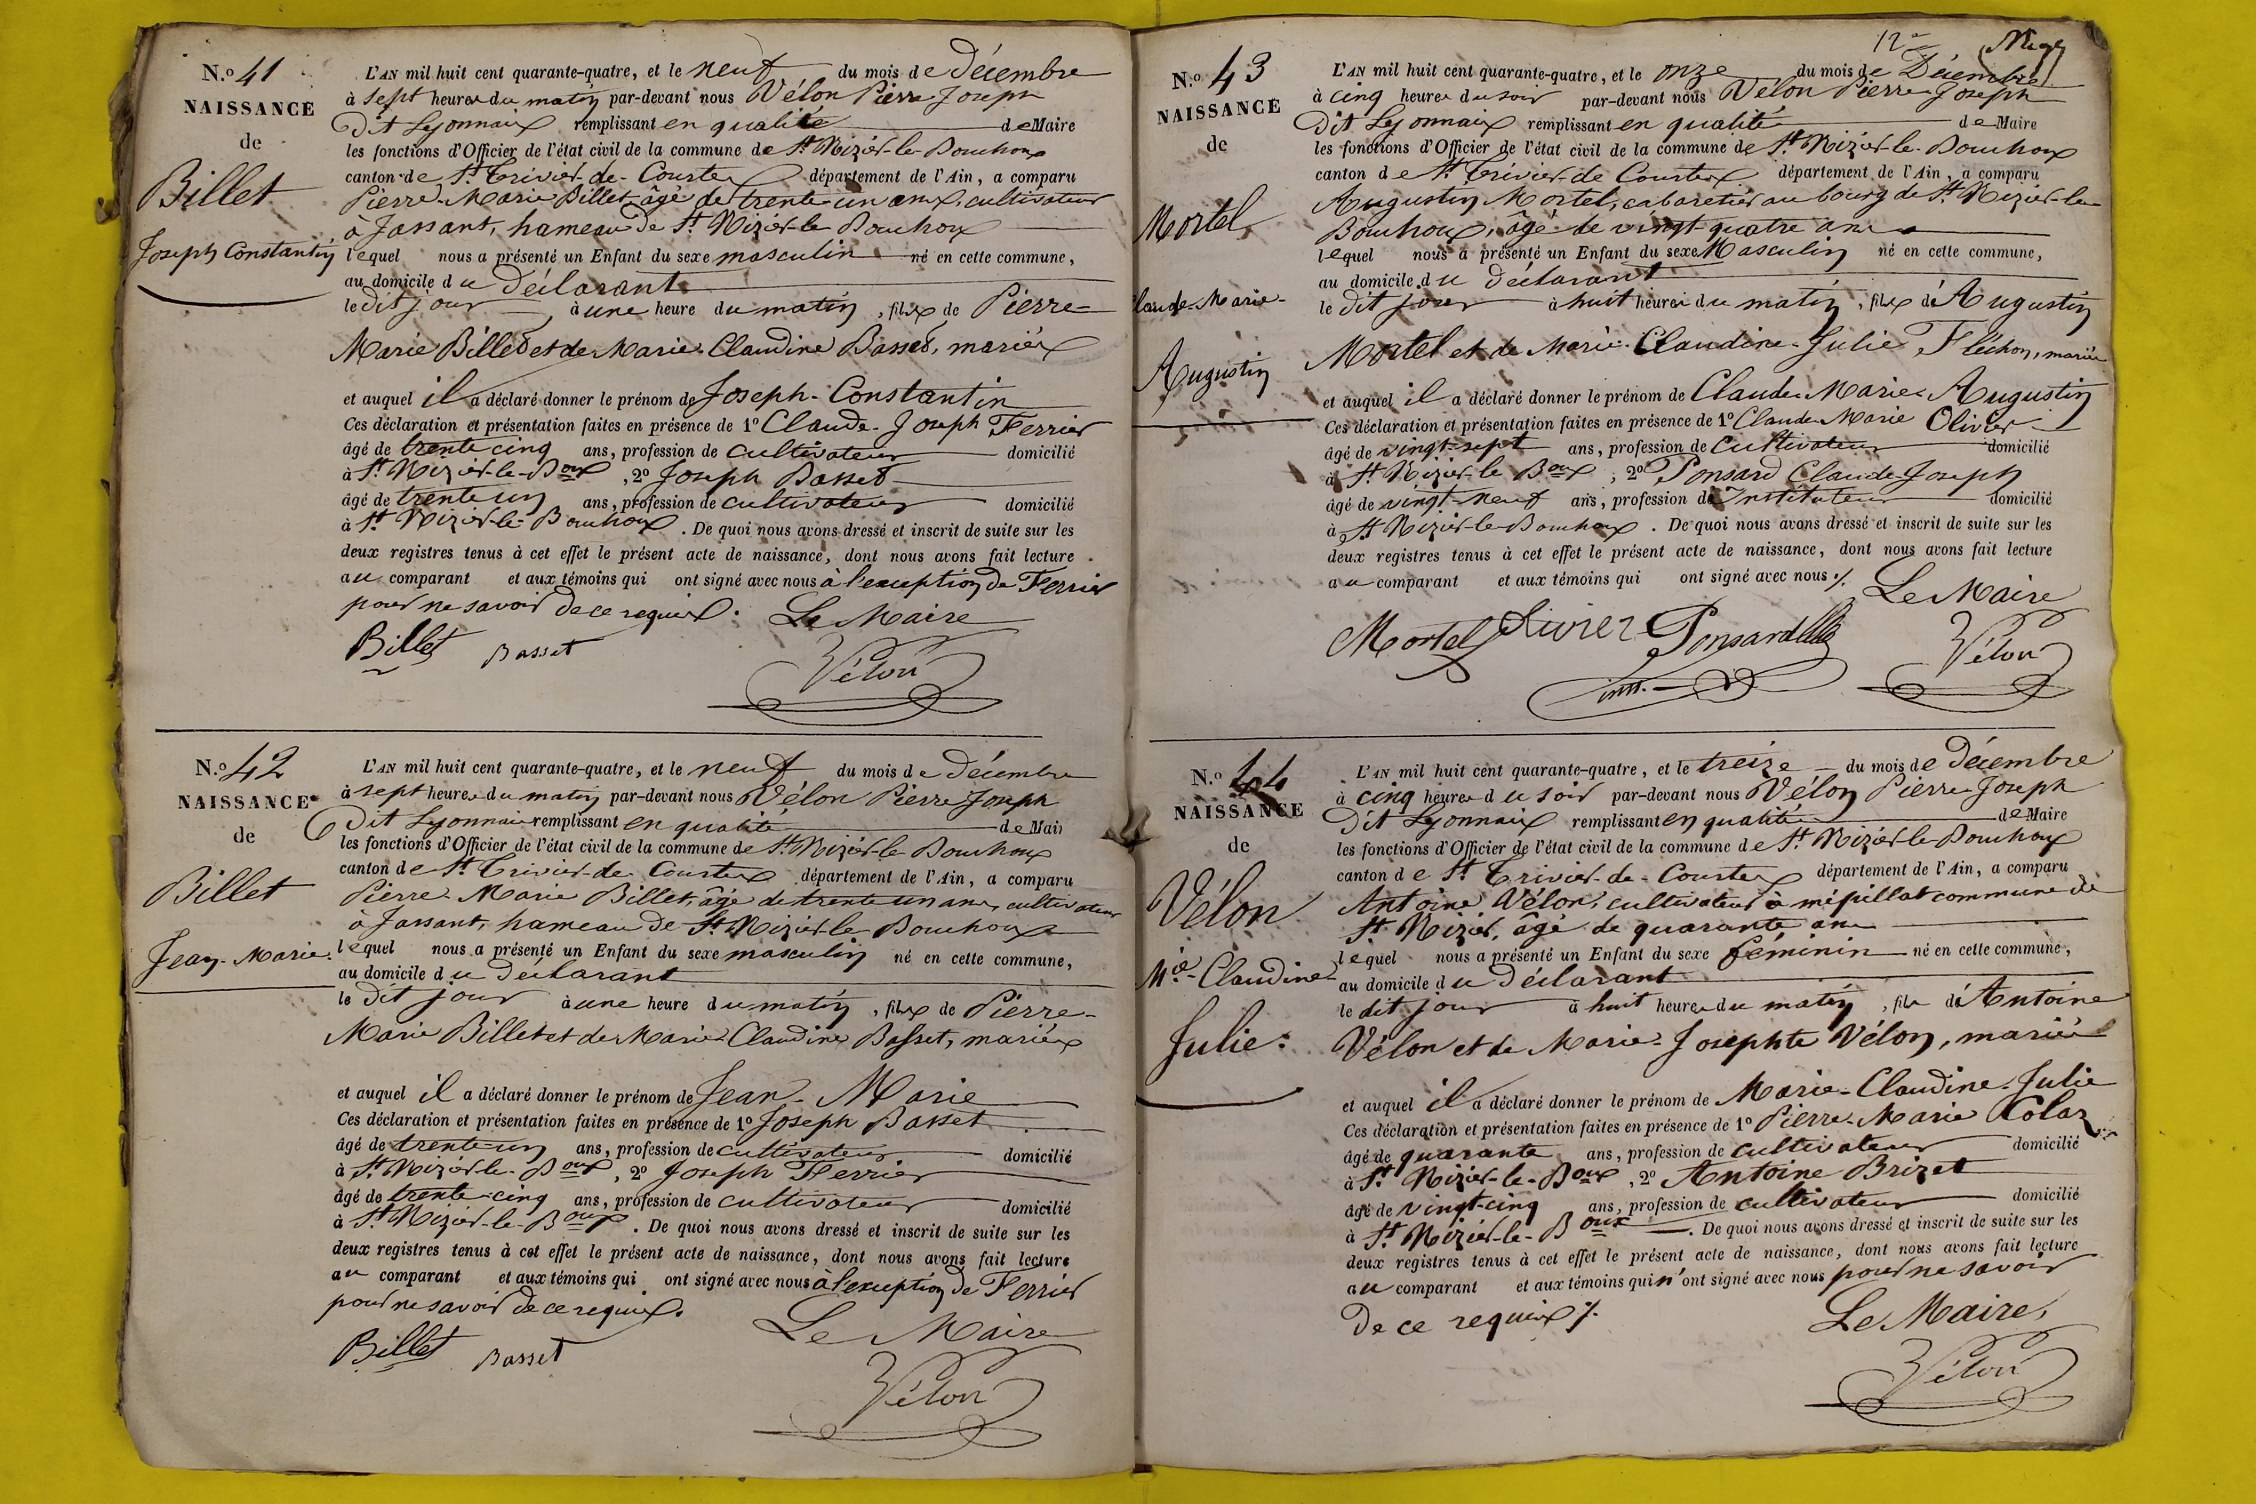 N.o 41
NAISSANCE
de
Billet
Joseph Constantin
L'AN mil huit cent quarante-quatre, et le neuf du mois de Décembre
à sept heures du matin par-devant nous Vélon Pierre Joseph
Dit Lyonnais remplissant en qualité de Maire
les fonctions d'Officier de l'état civil de la commune de St Nizier-le-Bouchoux
canton de St Trivier-de-Courtes département de l'Ain, a comparu
Pierre-Marie Billet, âgé de trente un ans, cultivateur
à Jassant, hameau de St Nizier-le Bouchoux
lequel nous a présenté un Enfant du sexe masculin né en cette commune,
au domicile du Déclarant
le dit jour à une heure du matin, fils de Pierre-
Marie Billet et de Marie Claudine Basset, mariés
et auquel il a déclaré donner le prénom de Joseph-Constantin
Ces déclaration et présentation faites en présence de 1o Claude-Joseph Ferrier
âgé de trente cinq ans, profession de cultivateur domicilié
à St Nizier-le-Boux, 2o Joseph Basset
âgé de trente un ans, profession de cultivateur domicilié
à St Nizier-le-Bouchoux. De quoi nous avons dressé et inscrit de suite sur les
deux registres tenus à cet effet le présent acte de naissance, dont nous avons fait lecture
au comparant et aux témoins qui ont signé avec nous à l'exception de Ferrier
pour ne savoir de ce requis. Le Maire
Billet Basset Vélon
N.o 42
NAISSANCE
de
Billet
Jean-Marie
L'AN mil huit cent quarante-quatre, et le neuf du mois de Décembre
à sept heures du matin par-devant nous Vélon Pierre Joseph
Dit Lyonnais remplissant en qualité de Mair
les fonctions d'Officier de l'état civil de la commune de St Nizier-le-Bouchoux
canton de St Trivier-de-Courtes département de l'Ain, a comparu
Pierre-Marie Billet, âgé de trente un ans, cultivateur
à Jassant, hameau de St Nizier le Bouchoux
lequel nous a présenté un Enfant du sexe masculin né en cette commune,
au domicile du Déclarant
le dit jour à une heure du matin, fils de Pierre-
Marie Billet et de Marie Claudine Basset, mariés
et auquel il a déclaré donner le prénom de Jean-Marie
Ces déclaration et présentation faites en présence de 1o Joseph Basset
âgé de trente un ans, profession de cultivateur domicilié
à St Nizier-le-Boux, 2o Joseph Ferrier
âgé de trente-cinq ans, profession de cultivateur domicilié
à St Nizier-le-Boux. De quoi nous avons dressé et inscrit de suite sur les
deux registres tenus à cet effet le présent acte de naissance, dont nous avons fait lecture
au comparant et aux témoins qui ont signé avec nous à l'exception de Ferrier
pour ne savoir de ce requis. Le Maire
Billet Basset Vélon
12e
N.o 43
NAISSANCE
de
Mortel
Claude-Marie-
Augustin
L'AN mil huit cent quarante-quatre, et le onze du mois de Décembre
à cinq heures du soir par-devant nous Vélon Pierre Joseph
Dit Lyonnais remplissant en qualité de Maire
les fonctions d'Officier de l'état civil de la commune de St Nizier-le-Bouchoux
canton de St Trivier-de Courtes département de l'Ain, a comparu
Augustin Mortel, cabaretier au bourg de St Nizier-le
Bouchoux, âgé de vingt-quatre ans
lequel nous a présenté un Enfant du sexe Masculin né en cette commune,
au domicile du déclarant
le dit jour à huit heures du matin, fils de Augustin
Mortel et de Marie-Claudine-Julie Fléchon, mariés
et auquel il a déclaré donner le prénom de Claude-Marie-Augustin
Ces déclaration et présentation faites en présence de 1o Claude-Marie Olivier
âgé de vingt-sept ans, profession de Cultivateur domicilié
à St Nizier-le Boux, 2o Ponsard Claude-Joseph
âgé de vingt-neuf ans, profession de Instituteur domicilié
à St Nizier-le-Bouchoux. De quoi nous avons dressé et inscrit de suite sur les
deux registres tenus à cet effet le présent acte de naissance, dont nous avons fait lecture
au comparant et aux témoins qui ont signé avec nous ./. Le Maire
Mortel Olivier Ponsard Vélon
inst.
N.o 44
NAISSANCE
de
Vélon
Mie-Claudine-
Julie.
L'AN mil huit cent quarante-quatre, et le treize du mois de Décembre
à cinq heures du soir par-devant nous Vélon Pierre Joseph
Dit Lyonnais remplissant en qualité de Maire
les fonctions d'Officier de l'état civil de la commune de St Nizier-le-Bouchoux
canton de St Trivier-de-Courtes département de l'Ain, a comparu
Antoine Vélon, cultivateur à mépillat commune de
St Nizier, âgé de quarante ans
lequel nous a présenté un Enfant du sexe féminin né en cette commune,
au domicile du Déclarant
le dit jour à huit heures du matin, fille de Antoine
Vélon et de Marie-Josephte Vélon, mariés
et auquel il a déclaré donner le prénom de Marie-Claudine-Julie
Ces déclaration et présentation faites en présence de 1o Pierre-Marie Colas
âgé de quarante ans, profession de cultivateur domicilié
à St Nizier-le-Boux, 2o Antoine Brizet
âgé de vingt-cinq ans, profession de cultivateur domicilié
à St Nizier-le-Boux. De quoi nous avons dressé et inscrit de suite sur les
deux registres tenus à cet effet le présent acte de naissance, dont nous avons fait lecture
au comparant et aux témoins qui n'ont signé avec nous pour ne savoir
de ce requis ./. Le Maire,
Vélon